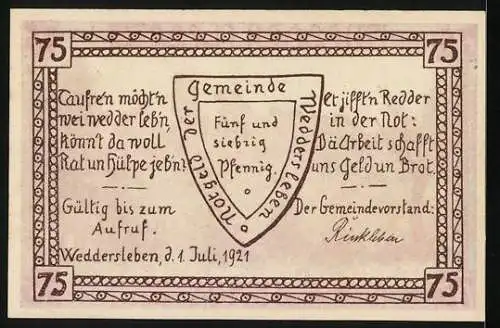 75
75
Taufre'n möcht'n
wei wedder leb'n,
könn't da woll
Rat un Hülpe jeb'n?
Gültig bis zum
Aufruf.
Weddersleben, d. 1. Juli, 1921
Notgeld der Gemeinde Weddersleben
Fünf und
siebzig
Pfennig.
et jifft'n Redder
in der Not:
Dä Arbeit schafft
uns Geld un Brot.
Der Gemeindevorstand:
75
75